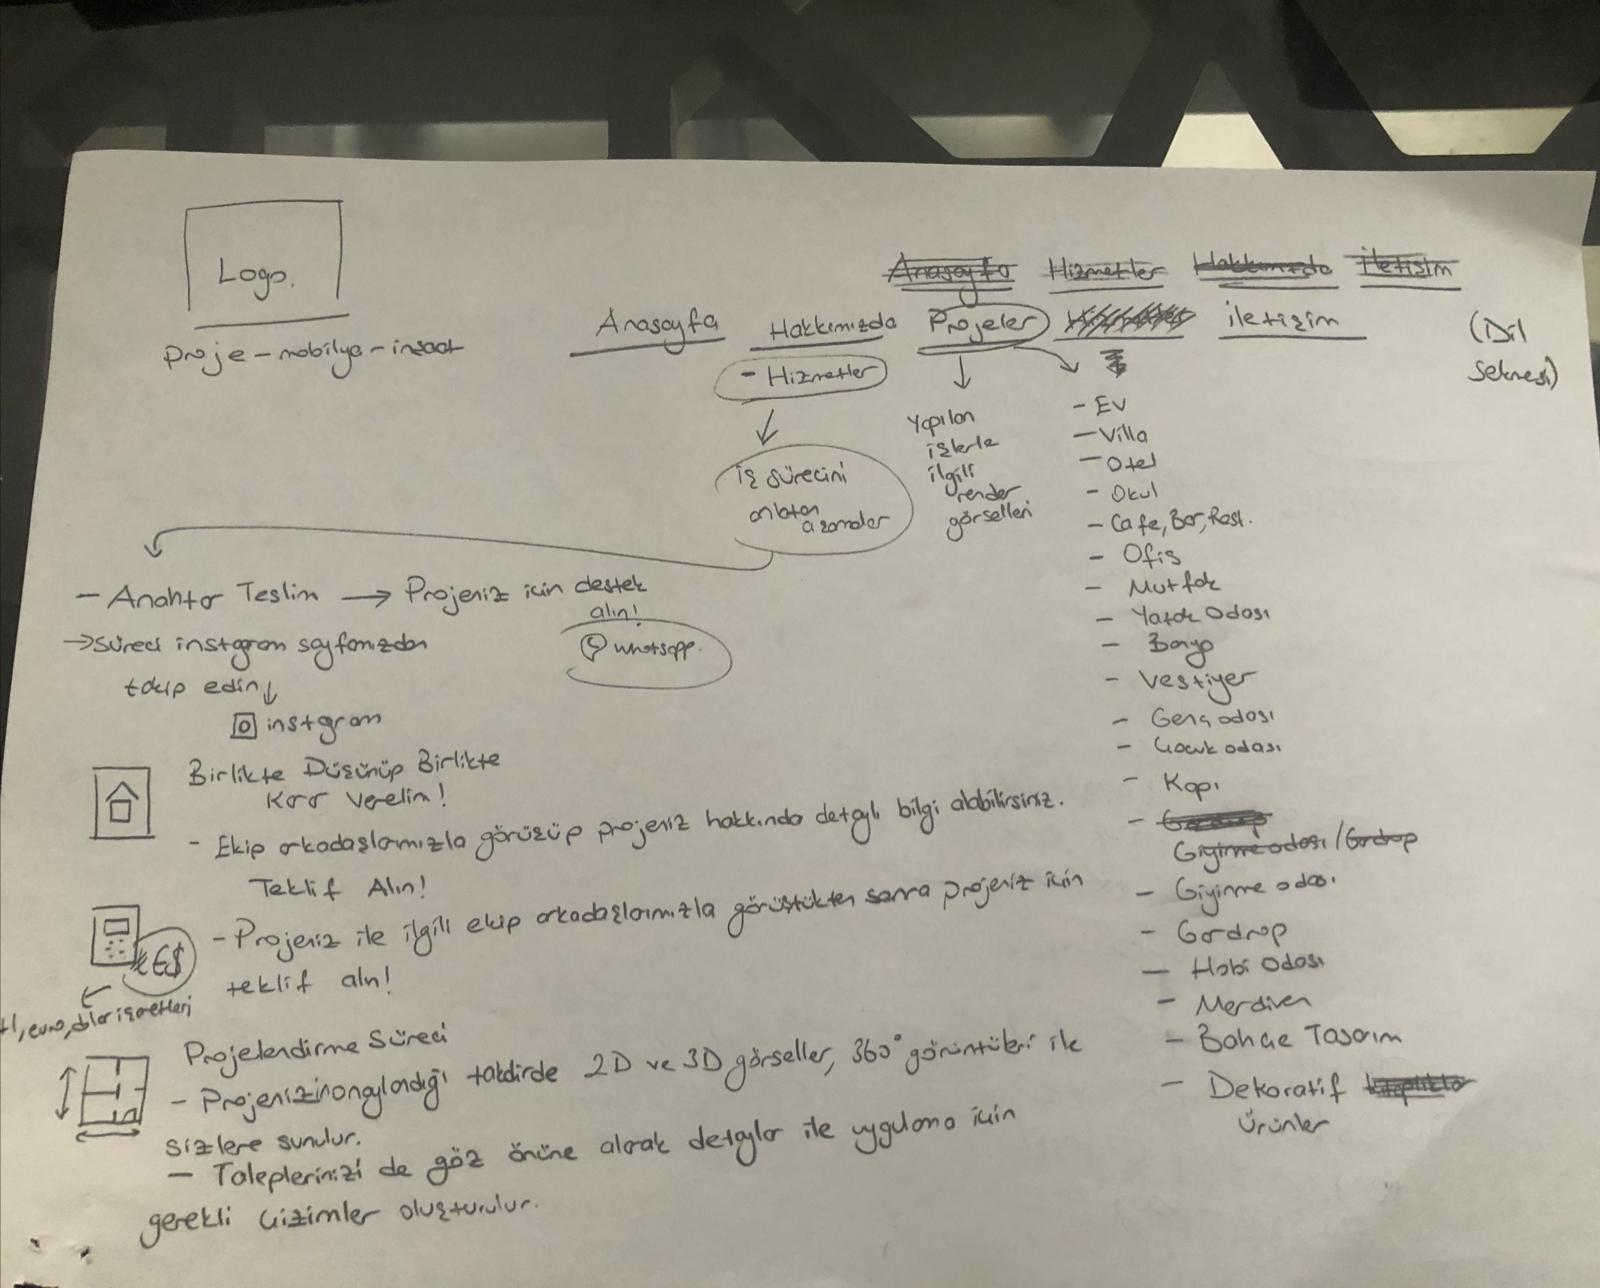 Logo.
Proje - mobilya - inşaat
Anasayfa Hizmetler Hakkımızda İletişim
Anasayfa Hakkımızda Projeler İletişim (Dil
seknesi)
- Hizmetler
iş sürecini
anlatan
aşamalar
Yapılan
işlerle
ilgili
render
görselleri
- Ev
- Villa
- Otel
- Okul
- Cafe, Bar, Rest.
- Ofis
- Mutfak
- Yatak Odası
- Banyo
- Vestiyer
- Genç odası
- Çocuk odası
- Kapı
- Gardrop
Giyinme odası / Gardrop
- Giyinme odası
- Gardrop
- Hobi Odası
- Merdiven
- Bahçe Tasarım
- Dekoratif
Ürünler
- Anahtar Teslim → Projeniz için destek
alın!
whatsapp.
→ Süreci instgram sayfamızdan
takip edin ↓
instgram
Birlikte Düşünüp Birlikte
Karar Verelim!
- Ekip arkadaşlarımızla görüşüp projeniz hakkında detaylı bilgi alabilirsiniz.
Teklif Alın!
- Projeniz ile ilgili ekip arkadaşlarımızla görüştükten sonra projeniz için
teklif alın!
₺€$
tl, euro, dolar işaretleri
Projelendirme Süreci
- Projenizin onaylandığı takdirde 2D ve 3D görseller, 360° görüntüleri ile
sizlere sunulur.
- Taleplerinizi de göz önüne alarak detaylar ile uygulama için
gerekli çizimler oluşturulur.